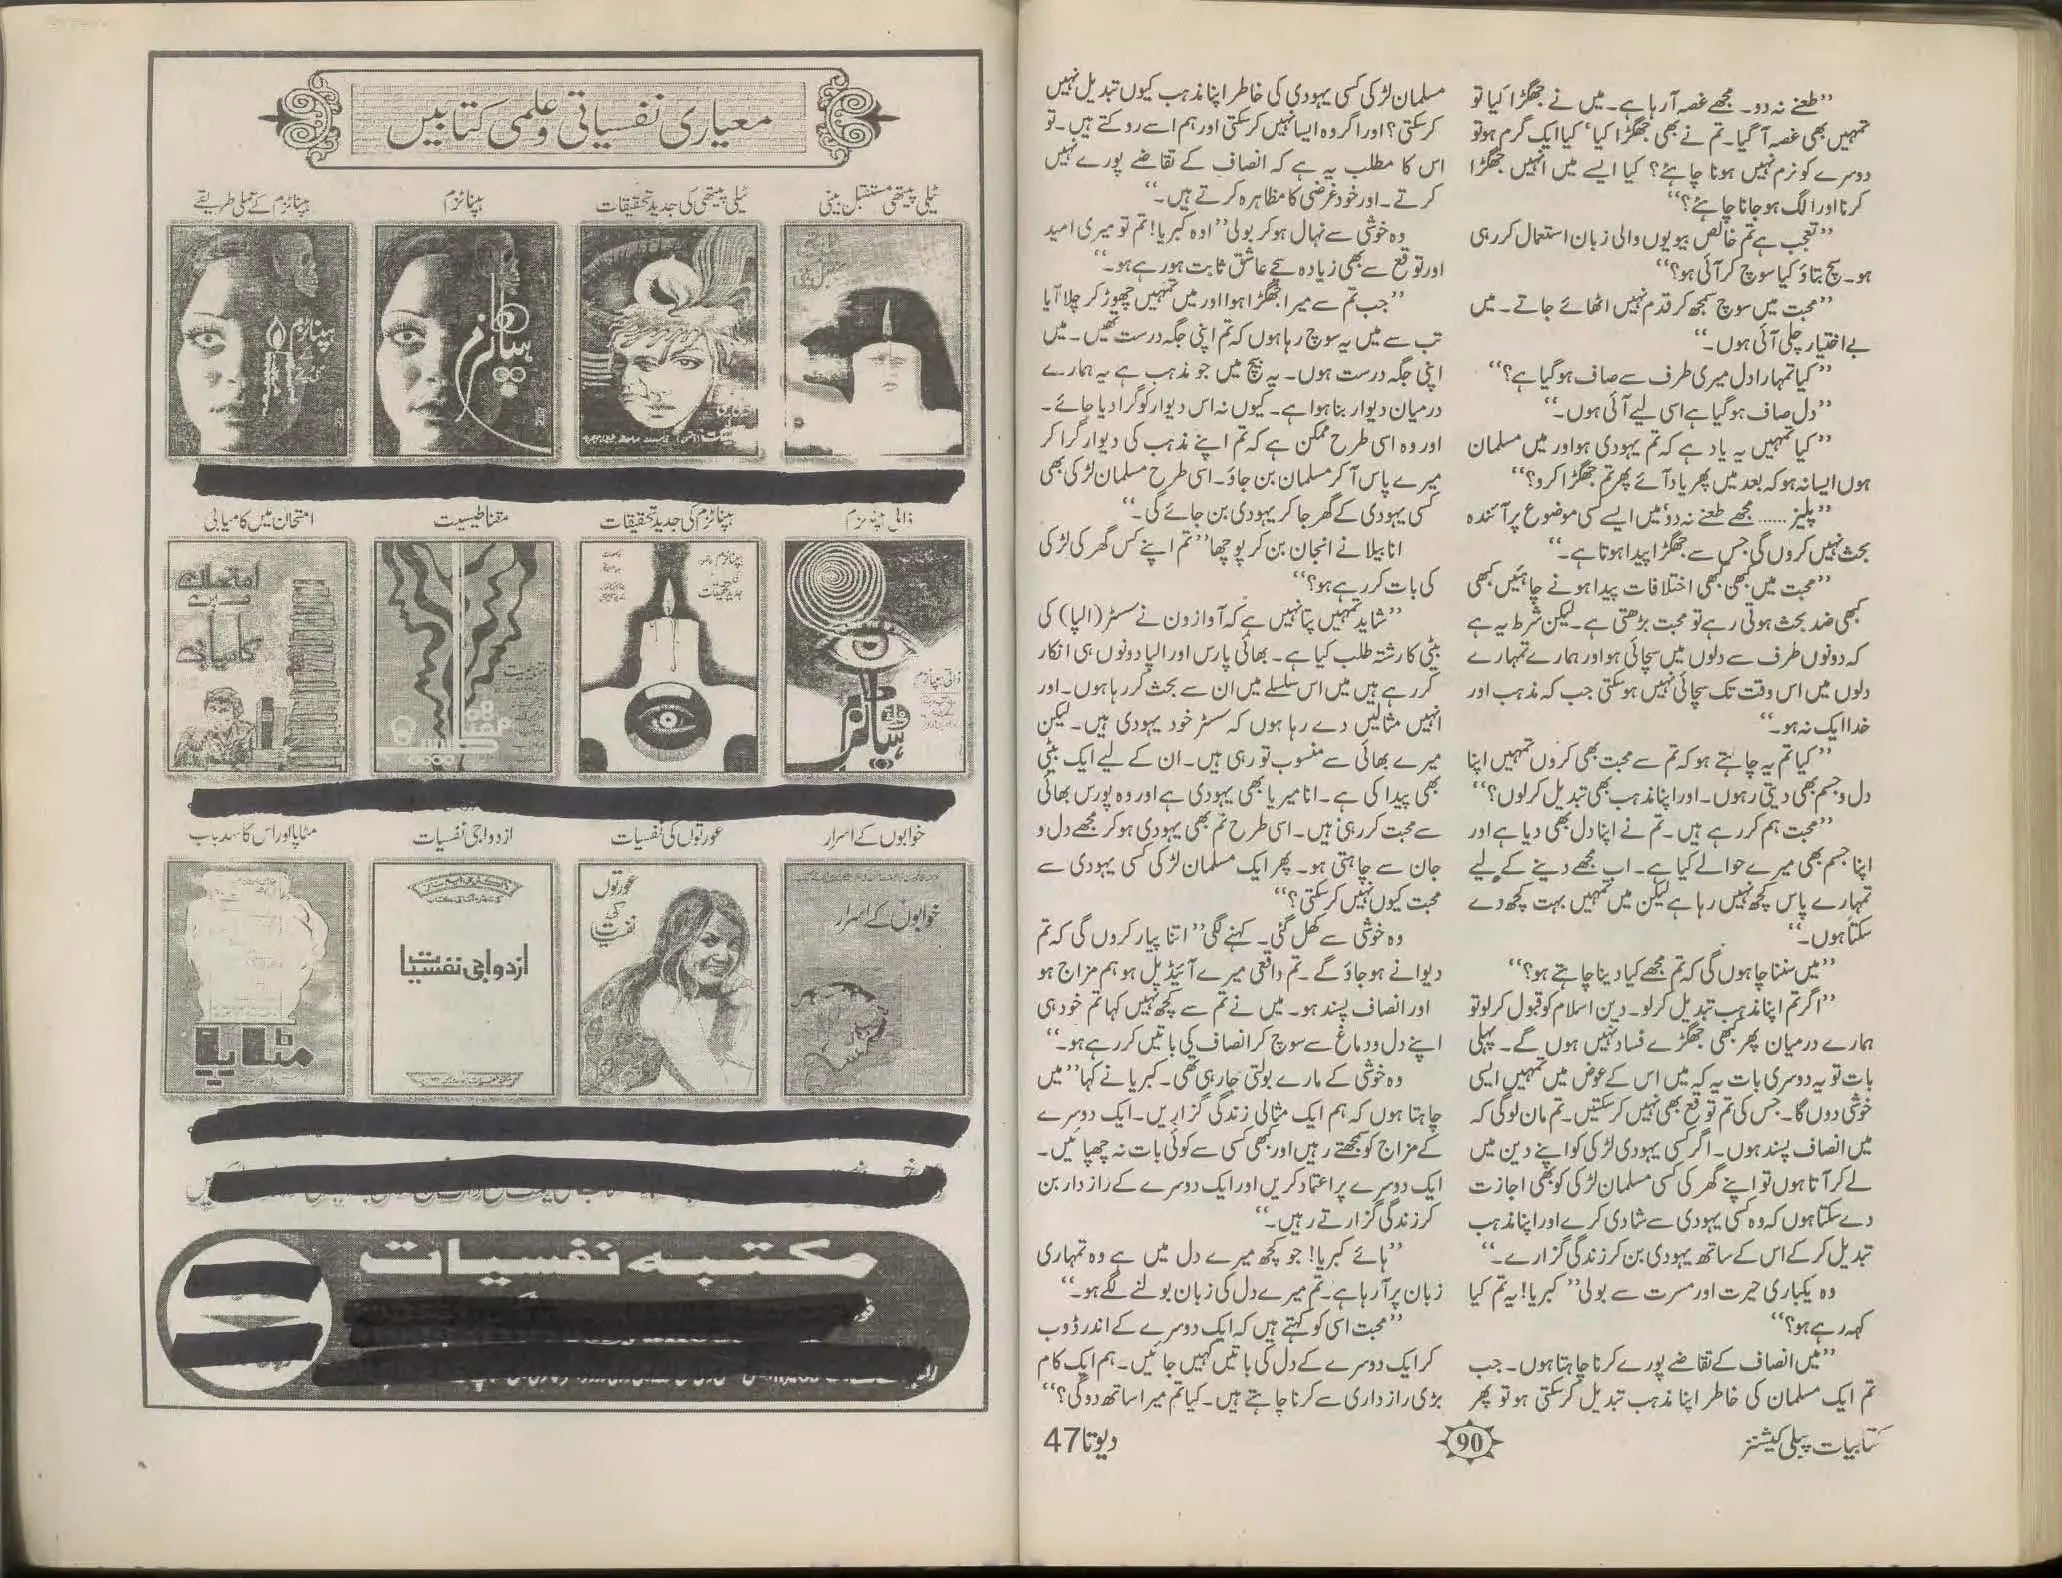 ”طعنے نہ دو۔ مجھے غصہ آرہا ہے۔ میں نے جھگڑا کیا تو
تمہیں بھی غصہ آگیا۔ تم نے بھی جھگڑا کیا‘ کیا ایک گرم ہو تو
دوسرے کو نرم نہیں ہونا چاہئے؟ کیا ایسے میں انہیں جھگڑا
کرنا اور الگ ہوجانا چاہئے؟“
”تعجب ہے تم خالص بیویوں والی زبان استعمال کررہی
ہو۔ سچ بتاؤ کیا سوچ کر آئی ہو؟“
”محبت میں سوچ سمجھ کر قدم نہیں اٹھائے جاتے۔ میں
بے اختیار چلی آئی ہوں۔“
”کیا تمہارا دل میری طرف سے صاف ہوگیا ہے؟“
”دل صاف ہوگیا ہے اسی لیے آئی ہوں۔“
”کیا تمہیں یہ یاد ہے کہ تم یہودی ہو اور میں مسلمان
ہوں ایسا نہ ہو کہ بعد میں پھر یاد آئے پھر تم جھگڑا کرو؟“
”پلیز ...... مجھے طعنے نہ دو‘ میں ایسے کسی موضوع پر آئندہ
بحث نہیں کروں گی جس سے جھگڑا پیدا ہوتا ہے۔“
”محبت میں کبھی کبھی اختلافات پیدا ہونے چاہئیں کبھی
کبھی ضد بحث ہوتی رہے تو محبت بڑھتی ہے۔ لیکن شرط یہ ہے
کہ دونوں طرف سے دلوں میں سچائی ہو اور ہمارے تمہارے
دلوں میں اس وقت تک سچائی نہیں ہوسکتی جب کہ مذہب اور
خدا ایک نہ ہو۔“
”کیا تم یہ چاہتے ہو کہ تم سے محبت بھی کروں تمہیں اپنا
دل و جسم بھی دیتی رہوں۔ اور اپنا مذہب بھی تبدیل کرلوں؟“
”محبت ہم کررہے ہیں۔ تم نے اپنا دل بھی دیا ہے اور
اپنا جسم بھی میرے حوالے کیا ہے۔ اب مجھے دینے کے لیے
تمہارے پاس کچھ نہیں رہا ہے لیکن میں تمہیں بہت کچھ دے
سکتا ہوں۔“
”میں سننا چاہوں گی کہ تم مجھے کیا دینا چاہتے ہو؟“
”اگر تم اپنا مذہب تبدیل کرلو۔ دین اسلام کو قبول کرلو تو
ہمارے درمیان پھر کبھی جھگڑے فساد نہیں ہوں گے۔ پہلی
بات تو یہ دوسری بات یہ کہ میں اس کے عوض میں تمہیں ایسی
خوشی دوں گا۔ جس کی تم توقع بھی نہیں کرسکتیں۔ تم مان لوگی کہ
میں انصاف پسند ہوں۔ اگر کسی یہودی لڑکی کو اپنے دین میں
لے کر آتا ہوں تو اپنے گھر کی کسی مسلمان لڑکی کو بھی اجازت
دے سکتا ہوں کہ وہ کسی یہودی سے شادی کرے اور اپنا مذہب
تبدیل کرکے اس کے ساتھ یہودی بن کر زندگی گزارے۔“
وہ یکباری حیرت اور مسرت سے بولی ”کبریا! یہ تم کیا
کہہ رہے ہو؟“
”میں انصاف کے تقاضے پورے کرنا چاہتا ہوں۔ جب
تم ایک مسلمان کی خاطر اپنا مذہب تبدیل کرسکتی ہو تو پھر
مسلمان لڑکی کسی یہودی کی خاطر اپنا مذہب کیوں تبدیل نہیں
کرسکتی؟ اور اگر وہ ایسا نہیں کرسکتی اور ہم اسے روکتے ہیں۔ تو
اس کا مطلب یہ ہے کہ انصاف کے تقاضے پورے نہیں
کرتے۔ اور خود غرضی کا مظاہرہ کرتے ہیں۔“
وہ خوشی سے نہال ہوکر بولی ”اوہ کبریا! تم تو میری امید
اور توقع سے بھی زیادہ سچے عاشق ثابت ہورہے ہو۔“
”جب تم سے میرا جھگڑا ہوا اور میں تمہیں چھوڑ کر چلا آیا
تب سے میں یہ سوچ رہا ہوں کہ تم اپنی جگہ درست تھیں۔ میں
اپنی جگہ درست ہوں۔ یہ بیچ میں جو مذہب ہے یہ ہمارے
درمیان دیوار بنا ہوا ہے۔ کیوں نہ اس دیوار کو گرا دیا جائے۔
اور وہ اسی طرح ممکن ہے کہ تم اپنے مذہب کی دیوار گرا کر
میرے پاس آکر مسلمان بن جاؤ۔ اسی طرح مسلمان لڑکی بھی
کسی یہودی کے گھر جاکر یہودی بن جائے گی۔“
انابیلا نے انجان بن کر پوچھا ”تم اپنے کس گھر کی لڑکی
کی بات کررہے ہو؟“
”شاید تمہیں پتا نہیں ہے کہ آواز ون نے سسٹر (الپا) کی
بیٹی کا رشتہ طلب کیا ہے۔ بھائی پارس اور الپا دونوں ہی انکار
کررہے ہیں میں اس سلسلے میں ان سے بحث کررہا ہوں۔ اور
انہیں مثالیں دے رہا ہوں کہ سسٹر خود یہودی ہیں۔ لیکن
میرے بھائی سے منسوب تو رہی ہیں۔ ان کے لیے ایک بیٹی
بھی پیدا کی ہے۔ انا میریا بھی یہودی ہے اور وہ پورس بھائی
سے محبت کررہی ہیں۔ اسی طرح تم بھی یہودی ہوکر مجھے دل و
جان سے چاہتی ہو۔ پھر ایک مسلمان لڑکی کسی یہودی سے
محبت کیوں نہیں کرسکتی؟“
وہ خوشی سے کھل گئی۔ کہنے لگی ”اتنا پیار کروں گی کہ تم
دیوانے ہوجاؤ گے۔ تم واقعی میرے آئیڈیل ہو ہم مزاج ہو
اور انصاف پسند ہو۔ میں نے تم سے کچھ نہیں کہا تم خود ہی
اپنے دل و دماغ سے سوچ کر انصاف کی باتیں کررہے ہو۔“
وہ خوشی کے مارے بولتی جارہی تھی۔ کبریا نے کہا ”میں
چاہتا ہوں کہ ہم ایک مثالی زندگی گزاریں۔ ایک دوسرے
کے مزاج کو سمجھتے رہیں اور کبھی کسی سے کوئی بات نہ چھپائیں۔
ایک دوسرے پر اعتماد کریں اور ایک دوسرے کے رازدار بن
کر زندگی گزارتے رہیں۔“
”ہائے کبریا! جو کچھ میرے دل میں ہے وہ تمہاری
زبان پر آرہا ہے۔ تم میرے دل کی زبان بولنے لگے ہو۔“
”محبت اسی کو کہتے ہیں کہ ایک دوسرے کے اندر ڈوب
کر ایک دوسرے کے دل کی باتیں کہیں جائیں۔ ہم ایک کام
بڑی رازداری سے کرنا چاہتے ہیں۔ کیا تم میرا ساتھ دوگی؟“
کتابیات پبلی کیشنز
90
دیوتا 47
معیاری نفسیاتی و علمی کتابیں
ٹیلی پیتھی مستقبل بینی
ٹیلی پیتھی کی جدید تحقیقات
ہپناٹزم
ہپناٹزم کے عملی طریقے
ہپناٹزم
ہپناٹزم
ذاتی ہپناٹزم
ہپناٹزم کی جدید تحقیقات
مقناطیسیت
امتحان میں کامیابی
ذاتی ہپناٹزم
امتحان میں کامیابی
خوابوں کے اسرار
عورتوں کی نفسیات
ازدواجی نفسیات
مٹاپا اور اس کا سدباب
خوابوں کے اسرار
عورتوں کی نفسیات
ازدواجی نفسیات
مٹاپا
مکتبہ نفسیات